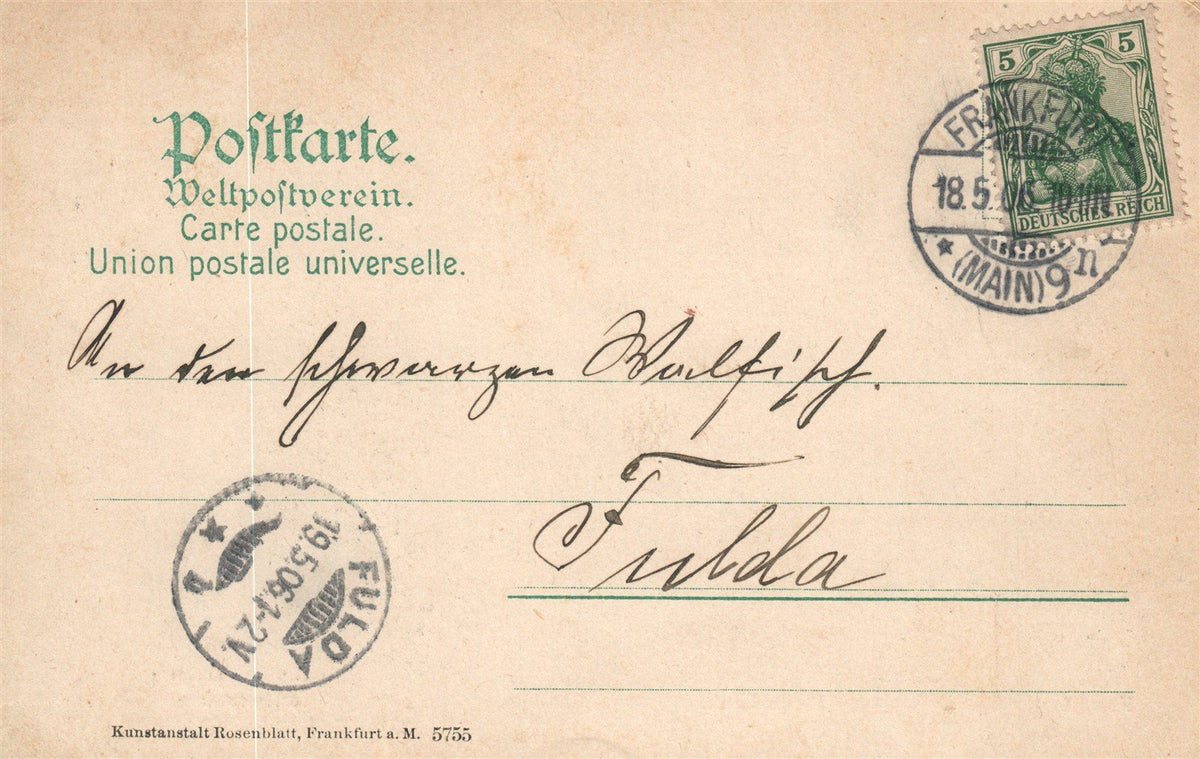 Postkarte.
Weltpostverein.
Carte postale.
Union postale universelle.
5 5
DEUTSCHES REICH
FRANKFURT
18.5.06. 10-11N
(MAIN) 9 n
An den schwarzen Walfisch.
Fulda
FULDA
19.5.06. 1-2V.
Kunstanstalt Rosenblatt, Frankfurt a. M. 5755